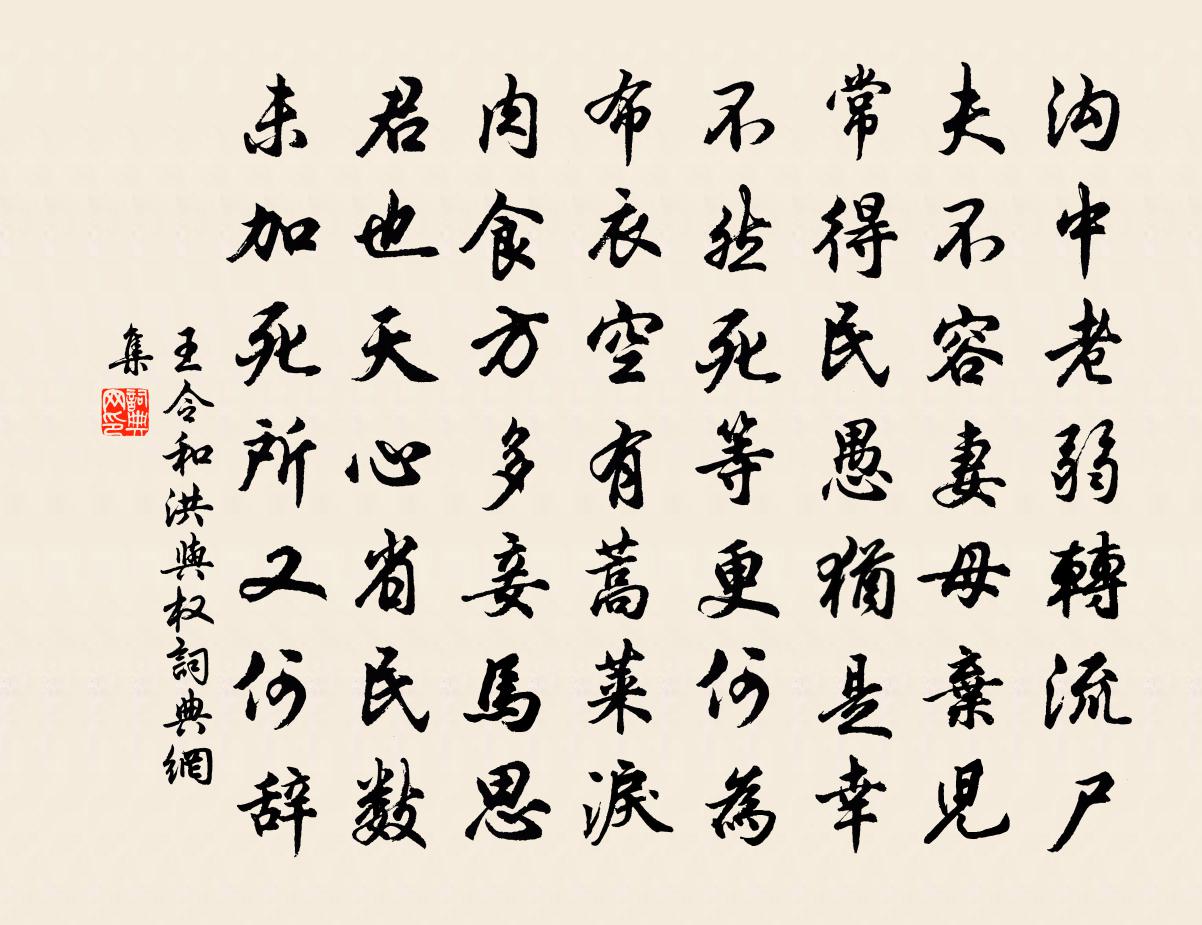 沟中老弱轉流尸
夫不容妻母棄児
常得民愚猶是幸
不然死等更何為
布衣空有蒿莱淚
肉食方多妾馬思
君也天心省民数
未加死所又何辞
王令和洪與权詞典網
集
詞典网印